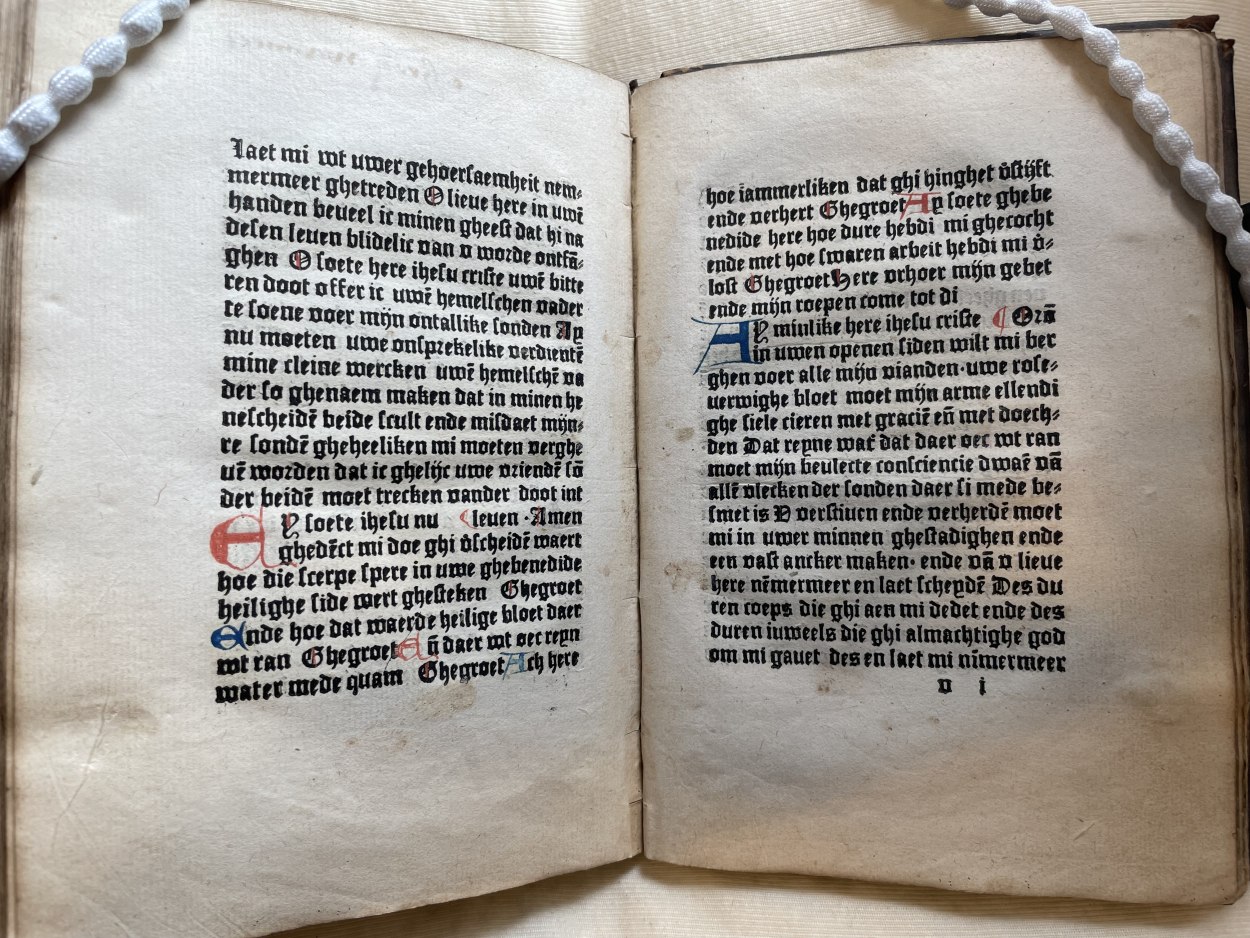 laet mi wt uwer gehoersaemheit nem⸗
mermeer ghetreden O lieue here in uwē
handen beueel ic minen gheest dat hi na
desen leuen blidelic van v worde ontfā⸗
ghen O soete here ihesu criste uwē bitte
ren doot offer ic uwē hemelschen vader
te soene voer mijn ontallike sonden Ay
nu moeten uwe onsprekelike verdientē
mine cleine wercken uwē hemelschē va
der so ghenaem maken dat in minen he
nescheidē beide scult ende misdaet mijn⸗
re sondē gheheeliken mi moeten verghe
uē worden dat ic ghelijc uwe vriendē sō
der beidē moet trecken vander doot int
Ey soete ihesu nu leuen ·Amen
ghedēct mi doe ghi v̄scheidē waert
hoe die scerpe spere in uwe ghebenedide
heilighe side wert ghesteken Ghegroet
Ende hoe dat waerde heilige bloet daer
wt ran Ghegroet Eñ daer wt oec reyn
water mede quam Ghegroet Ach here
hoe iammerliken dat ghi hinghet v̄stijft
ende verhert Ghegroet Ay soete ghebe
nedide here hoe dure hebdi mi ghecocht
ende met hoe swaren arbeit hebdi mi v̄⸗
lost Ghegroet Here vrhoer mijn gebet
ende mijn roepen come tot di
Ay minlike here ihesu criste Orā
in uwen openen siden wilt mi ber
ghen voer alle mijn vianden·uwe rose⸗
uerwighe bloet moet mijn arme ellendi
ghe siele cieren met graciē eñ met doech⸗
den Dat reyne wat̄ dat daer oec wt ran
moet mijn beulecte consciencie dwaē vā
allē vlecken der sonden daer si mede be⸗
smet is V verstiuen ende verherdē moet
mi in uwer minnen ghestadighen ende
een vast ancker maken· ende vā v lieue
here nēmermeer en laet scheydē Des du
ren coeps die ghi aen mi dedet ende des
duren iuweels die ghi almachtighe god
om mi gauet des en laet mi nīmermeer
v i